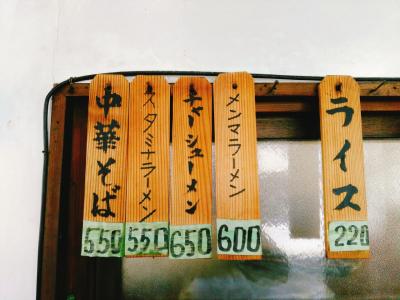 中華そば
550
スタミナラーメン
550
チャーシューメン
650
メンマラーメン
600
ライス
220